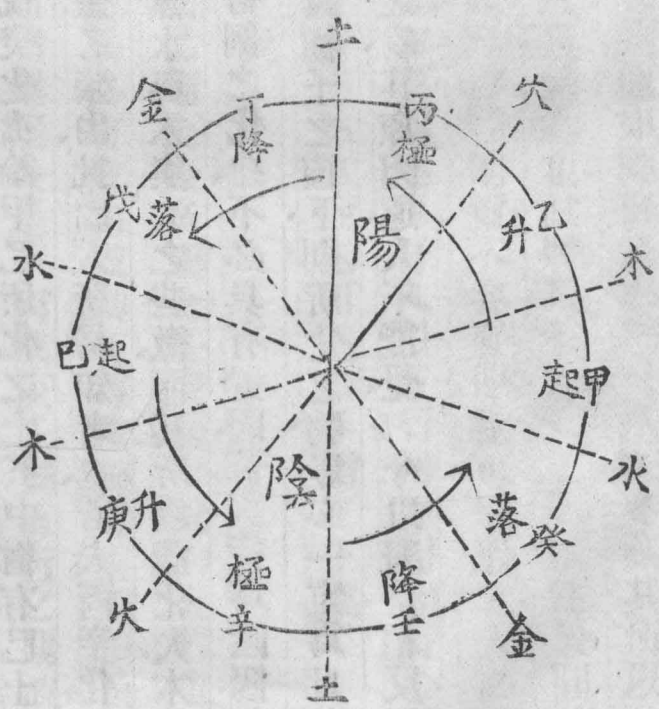 土
金
火
丁
降
丙
極
戊
落
乙
升
陽
水
木
巳
起
起甲
木
水
陰
庚升
落
癸
極
辛
降
壬
火
金
土